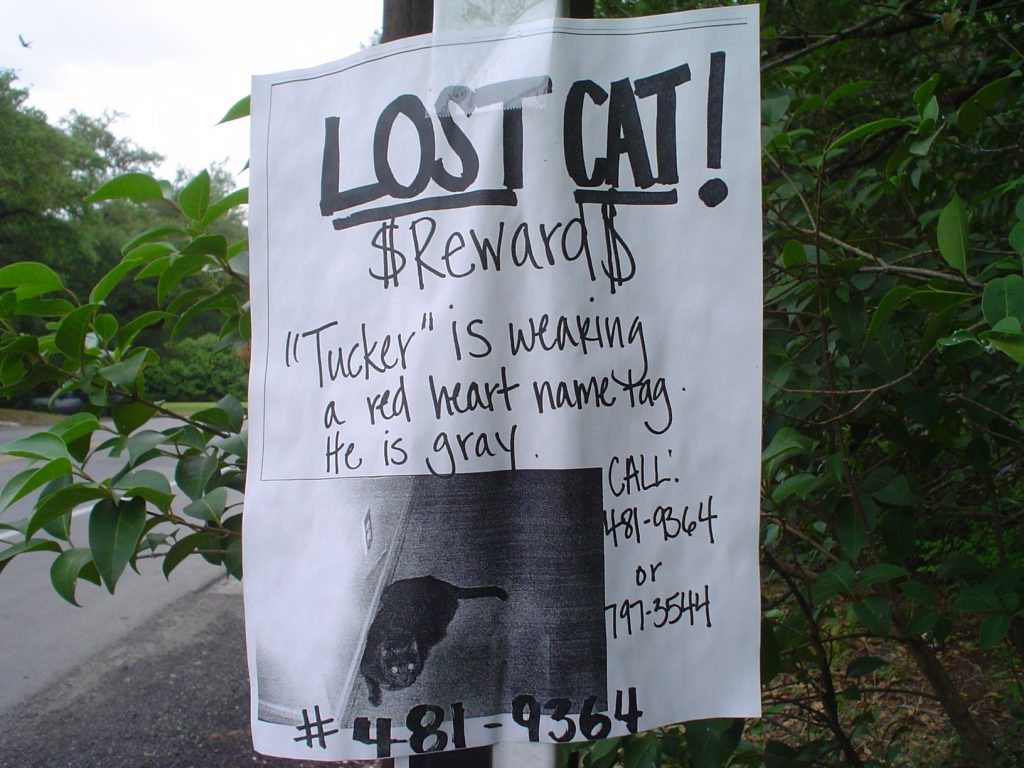 LOST CAT!
$Reward$
"Tucker" is wearing
a red heart name tag.
He is gray.
CALL:
481-9364
or
797-3544
# 481-9364